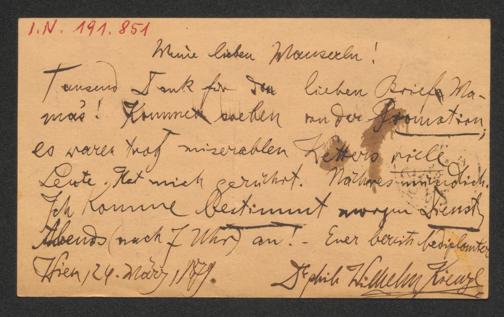 I.N. 191.851
Meine lieben Mauserln!
Tausend Dank für den lieben Brief Ma-
ma's! Komme soeben von der Promotion,
es waren trotz miserablen Wetters viele
Leute. Hat mich gerührt. Näheres mündlich.
Ich komme bestimmt morgen Dienst.
Abends (nach 7 Uhr) an! - Euer bereits bediplomter
Wien, 24. März, 1879. Dr phil Wilhelm Kienzl